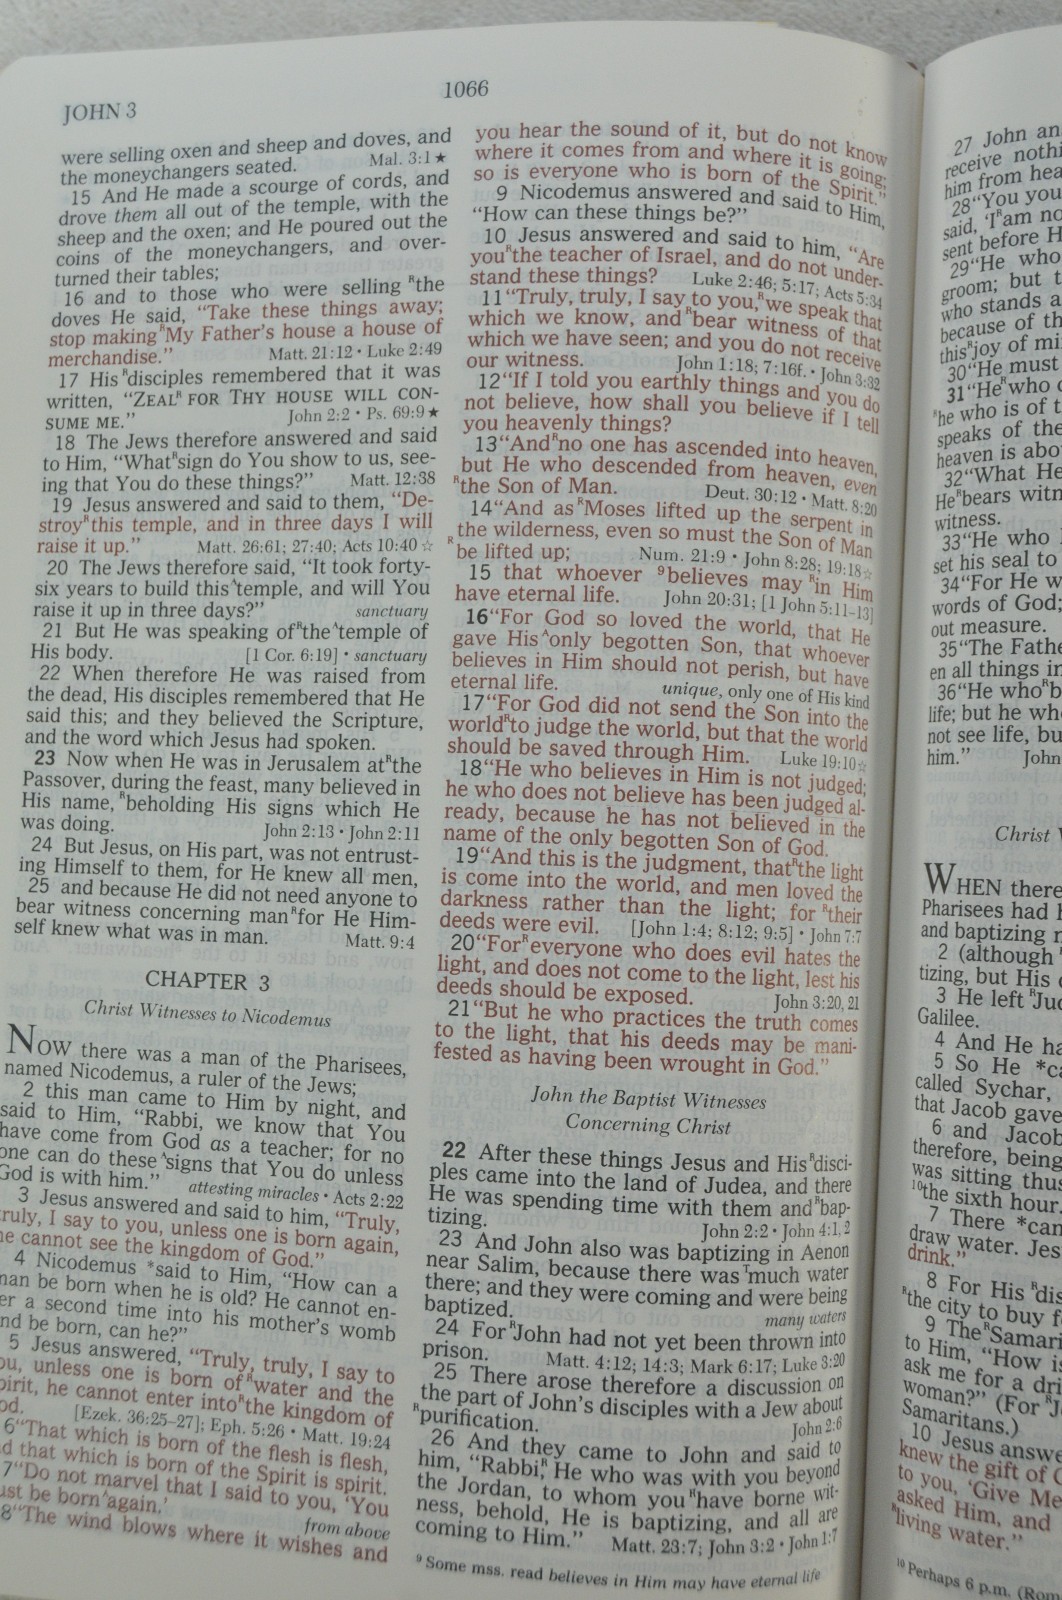 JOHN 3
1066
were selling oxen and sheep and doves, and
the moneychangers seated. Mal. 3:1★
15 And He made a scourge of cords, and
drove them all out of the temple, with the
sheep and the oxen; and He poured out the
coins of the moneychangers, and over-
turned their tables;
16 and to those who were selling ᴿthe
doves He said, “Take these things away;
stop makingᴿMy Father's house a house of
merchandise.” Matt. 21:12 • Luke 2:49
17 Hisᴿdisciples remembered that it was
written, “ZEALᴿ FOR THY HOUSE WILL CON-
SUME ME.” John 2:2 • Ps. 69:9★
18 The Jews therefore answered and said
to Him, “Whatᴿsign do You show to us, see-
ing that You do these things?” Matt. 12:38
19 Jesus answered and said to them, “De-
stroyᴿthis temple, and in three days I will
raise it up.” Matt. 26:61; 27:40; Acts 10:40☆
20 The Jews therefore said, “It took forty-
six years to build thisᴬtemple, and will You
raise it up in three days?” sanctuary
21 But He was speaking ofᴿtheᴬtemple of
His body. [1 Cor. 6:19] • sanctuary
22 When therefore He was raised from
the dead, His disciples remembered that He
said this; and they believed the Scripture,
and the word which Jesus had spoken.
23 Now when He was in Jerusalem atᴿthe
Passover, during the feast, many believed in
His name, ᴿbeholding His signs which He
was doing. John 2:13 • John 2:11
24 But Jesus, on His part, was not entrust-
ing Himself to them, for He knew all men,
25 and because He did not need anyone to
bear witness concerning manᴿfor He Him-
self knew what was in man. Matt. 9:4
CHAPTER 3
Christ Witnesses to Nicodemus
NOW there was a man of the Pharisees,
named Nicodemus, a ruler of the Jews;
2 this man came to Him by night, and
said to Him, “Rabbi, we know that You
have come from God as a teacher; for no
one can do theseᴬsigns that You do unless
God is with him.” attesting miracles • Acts 2:22
3 Jesus answered and said to him, “Truly,
truly, I say to you, unless one is born again,
he cannot see the kingdom of God.”
4 Nicodemus *said to Him, “How can a
man be born when he is old? He cannot en-
er a second time into his mother's womb
nd be born, can he?”
5 Jesus answered, “Truly, truly, I say to
ou, unless one is born ofᴿwater and the
pirit, he cannot enter intoᴿthe kingdom of
od. [Ezek. 36:25–27]; Eph. 5:26 • Matt. 19:24
6“That which is born of the flesh is flesh,
d that which is born of the Spirit is spirit.
7“Do not marvel that I said to you, ‘You
ust be bornᴬagain.’ from above
8“The wind blows where it wishes and
you hear the sound of it, but do not know
where it comes from and where it is going;
so is everyone who is born of the Spirit.”
9 Nicodemus answered and said to Him,
“How can these things be?”
10 Jesus answered and said to him, “Are
youᴿthe teacher of Israel, and do not under-
stand these things? Luke 2:46; 5:17; Acts 5:34
11“Truly, truly, I say to you,ᴿwe speak that
which we know, andᴿbear witness of that
which we have seen; and you do not receive
our witness. John 1:18; 7:16f. • John 3:32
12“If I told you earthly things and you do
not believe, how shall you believe if I tell
you heavenly things?
13“Andᴿno one has ascended into heaven,
but He who descended from heaven, even
ᴿthe Son of Man. Deut. 30:12 • Matt. 8:20
14“And asᴿMoses lifted up the serpent in
the wilderness, even so must the Son of Man
ᴿbe lifted up; Num. 21:9 • John 8:28; 19:18☆
15 that whoever ⁹believes may ᴿin Him
have eternal life. John 20:31; [1 John 5:11–13]
16“For God so loved the world, that He
gave Hisᴬonly begotten Son, that whoever
believes in Him should not perish, but have
eternal life. unique, only one of His kind
17“For God did not send the Son into the
worldᴿto judge the world, but that the world
should be saved through Him. Luke 19:10☆
18“He who believes in Him is not judged;
he who does not believe has been judged al-
ready, because he has not believed in the
name of the only begotten Son of God.
19“And this is the judgment, thatᴿthe light
is come into the world, and men loved the
darkness rather than the light; for ᴿtheir
deeds were evil. [John 1:4; 8:12; 9:5] • John 7:7
20“Forᴿeveryone who does evil hates the
light, and does not come to the light, lest his
deeds should be exposed. John 3:20, 21
21“But he who practices the truth comes
to the light, that his deeds may be mani-
fested as having been wrought in God.”
John the Baptist Witnesses
Concerning Christ
22 After these things Jesus and Hisᴿdisci-
ples came into the land of Judea, and there
He was spending time with them andᴿbap-
tizing. John 2:2 • John 4:1, 2
23 And John also was baptizing in Aenon
near Salim, because there wasᵀmuch water
there; and they were coming and were being
baptized. many waters
24 ForᴿJohn had not yet been thrown into
prison. Matt. 4:12; 14:3; Mark 6:17; Luke 3:20
25 There arose therefore a discussion on
the part of John's disciples with a Jew about
ᴿpurification. John 2:6
26 And they came to John and said to
him, “Rabbi,ᴿ He who was with you beyond
the Jordan, to whom youᴿhave borne wit-
ness, behold, He is baptizing, and all are
coming to Him.” Matt. 23:7; John 3:2 • John 1:7
⁹ Some mss. read believes in Him may have eternal life
27 John an
receive nothi
him from hea
28“You you
said, ‘Iᴿam no
sent before H
29“He who
groom; but t
who stands a
because of th
thisᴿjoy of mi
30“He must
31“Heᴿwho c
ᴿhe who is of t
speaks of the
heaven is abo
32“What He
Heᴿbears witn
witness.
33“He who
set his seal to
34“For He w
words of God;
out measure.
35“The Fathe
en all things in
36“He whoᴿb
life; but he wh
not see life, bu
him.” John
Christ
WHEN there
Pharisees had
and baptizing
2 (although
tizing, but His
3 He left ᴿJu
Galilee.
4 And He ha
5 So He *ca
called Sychar,
that Jacob gave
6 and Jacob
therefore, being
was sitting thus
¹⁰the sixth hour.
7 There *can
draw water. Jes
drink.”
8 For His ᴿdis
ᴿthe city to buy f
9 TheᴿSamari
to Him, “How is
ask me for a dri
woman?” (For ᴿJ
Samaritans.)
10 Jesus answe
knew the gift of G
to you, ‘Give Me
asked Him, and
ᴿliving water.”
¹⁰ Perhaps 6 p.m. (Rom